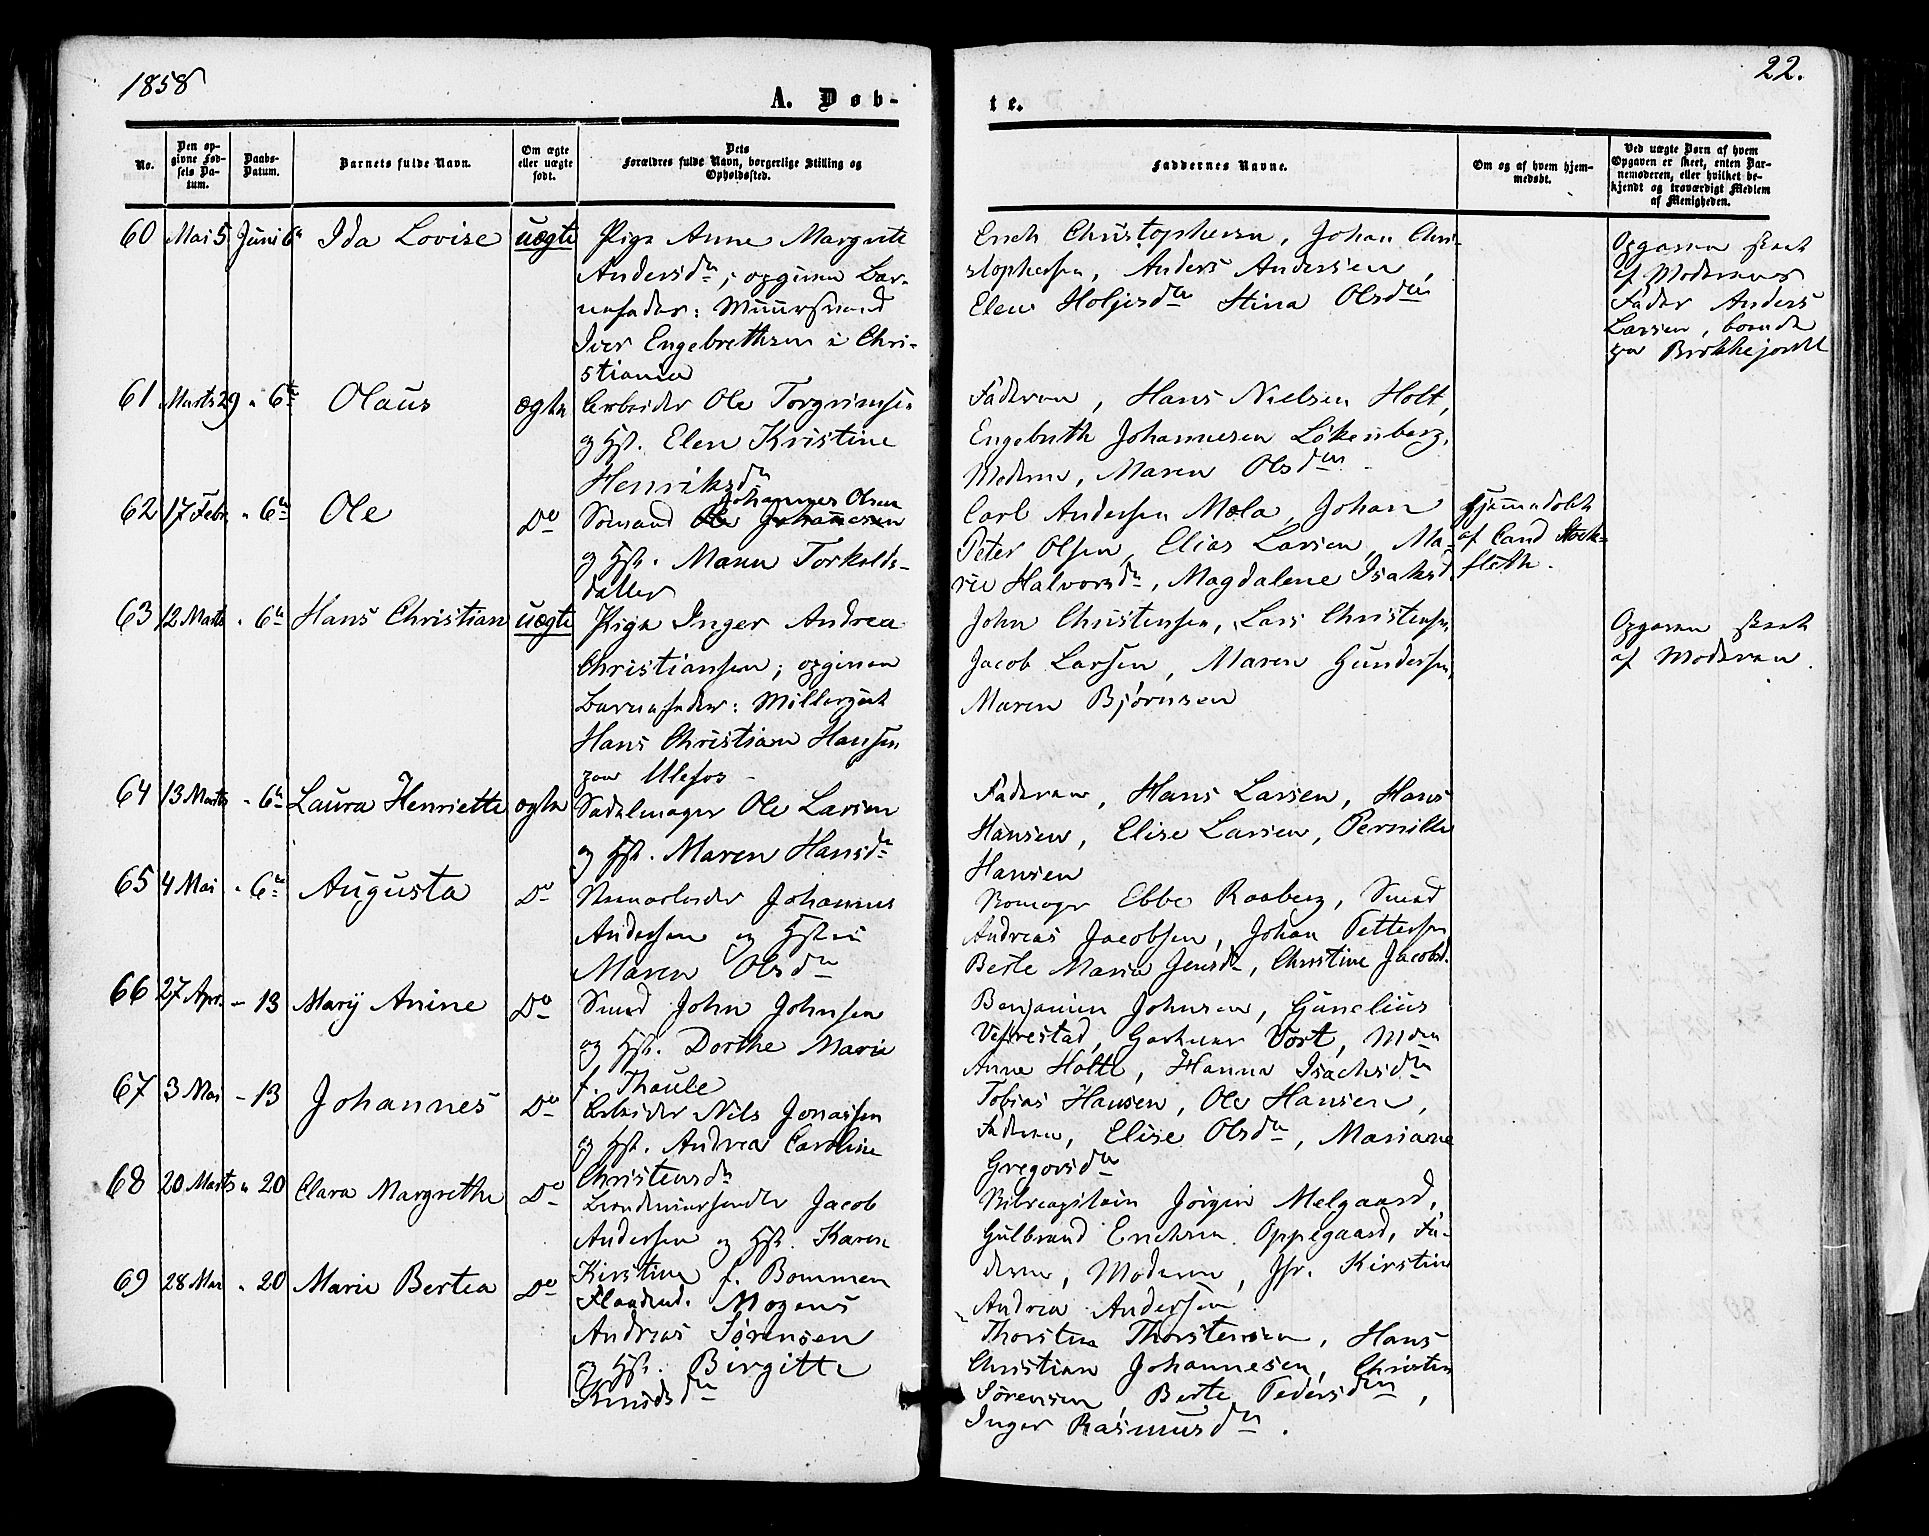 1858
22.
A. Døb-
te.
No.
Den op-
givne Fød-
sels Da-
tum.
Daabs-
Datum.
Barnets fulde Navn.
Om ægte
eller uægte
født.
Dets
Forældres fulde Navn, borgerlige Stilling og
Opholdssted.
Faddernes Navne.
Om og af hvem hjem-
medøbt.
Ved uægte Børn af hvem
Opgaven er skeet, enten Bar-
nemoderen, eller hvilket be-
kjendt og troværdigt Medlem
af Menigheden.
60 Mai 5 Juni 6te Ida Lovise uægte Pige Anne Margrete
Andersdtr; opgiven Bar-
nefader: Muursvend
Iver Engebrethsen i Chri-
stiania
Erich Christophersen, Johan Chri-
stophersen, Anders Andersen,
Elen Holjersdtr Stina Olsdtr
Opgaven skeet
af Moderens
Fader Anders
Larsen, boende
paa Brækkejordet
61 Marts 29 " 6te Olaus ægte Arbeider Ole Torgrimsen
og Hst. Elen Kristine
Henriksdtr
Faderen, Hans Nielsen Holt,
Engebreth Johannesen Løkenberg,
Moderen, Maren Olsdtr
62 17 Febr. " 6te Ole Do Sømand Ole Johannesen
Johannes Olsen
og Hst. Maren Torkelds-
datter
Carl Andersen Mæla, Johan
Peter Olsen, Elias Larsen, Ma-
rie Halvorsdtr, Magdalene Isaksd.
Hjemmedøbt
af Cand Stock-
fleth.
63 12 Marts " 6te Hans Christian uægte Pige Inger Andrea
Christiansen; opgiven
Barnefader: Møllersvend
Hans Christian Hansen
paa Ulefos
John Christensen, Lars Christensen
Jacob Larsen, Maren Gundersen,
Maren Bjørnsen
Opgaven skeet
af Moderen.
64 13 Marts " 6te Laura Henriette ægte Sadelmager Ole Larsen
og Hst. Maren Hansdtr
Faderen, Hans Larsen, Hans
Hansen, Elise Larsen, Pernille
Hansen
65 4 Mai " 6te Augusta Do Johannes
Andersen og Hstru
Maren Olsdtr
Ebbe Raaberg, Smed
Andreas Jacobsen, Johan Pettersen
Berte Maria Jensdtr, Christine Jacobsd.
66 27 Apr. - 13 Mary Anine Do Smed John Johnsen
og Hst. Dorthe Marie
f. Thaule
Benjamin Johnsen, Gunelius
Vefrestad, Gartner Vort, Mdm
Anne Holte, Hanna Isachsdtr
67 3 Mai - 13 Johannes Do Arbeider Nils Jonassen
og Hst. Andrea Caroline
Christensdtr
Tobias Hansen, Ole Hansen,
Faderen, Elise Olsdtr, Mariane
Gregorsdtr
68 20 Marts " 20 Clara Margrethe Do Jacob
Andersen og Hst. Karen
Kirstine f. Bommen
Jørgen Melgaard,
Gulbrand Erichsen Oppegaard, Fa-
deren, Moderen, Jfr. Kirstine
Andrea Andersen
69 28 Mai " 20 Marie Bertea Do Mogens
Andreas Sørensen
og Hst. Birgitte
Knudsdtr
Thorsten Thorstensen, Hans
Christian Johannesen, Christen
Sørensen, Berte Pedersdtr,
Inger Rasmusdtr.